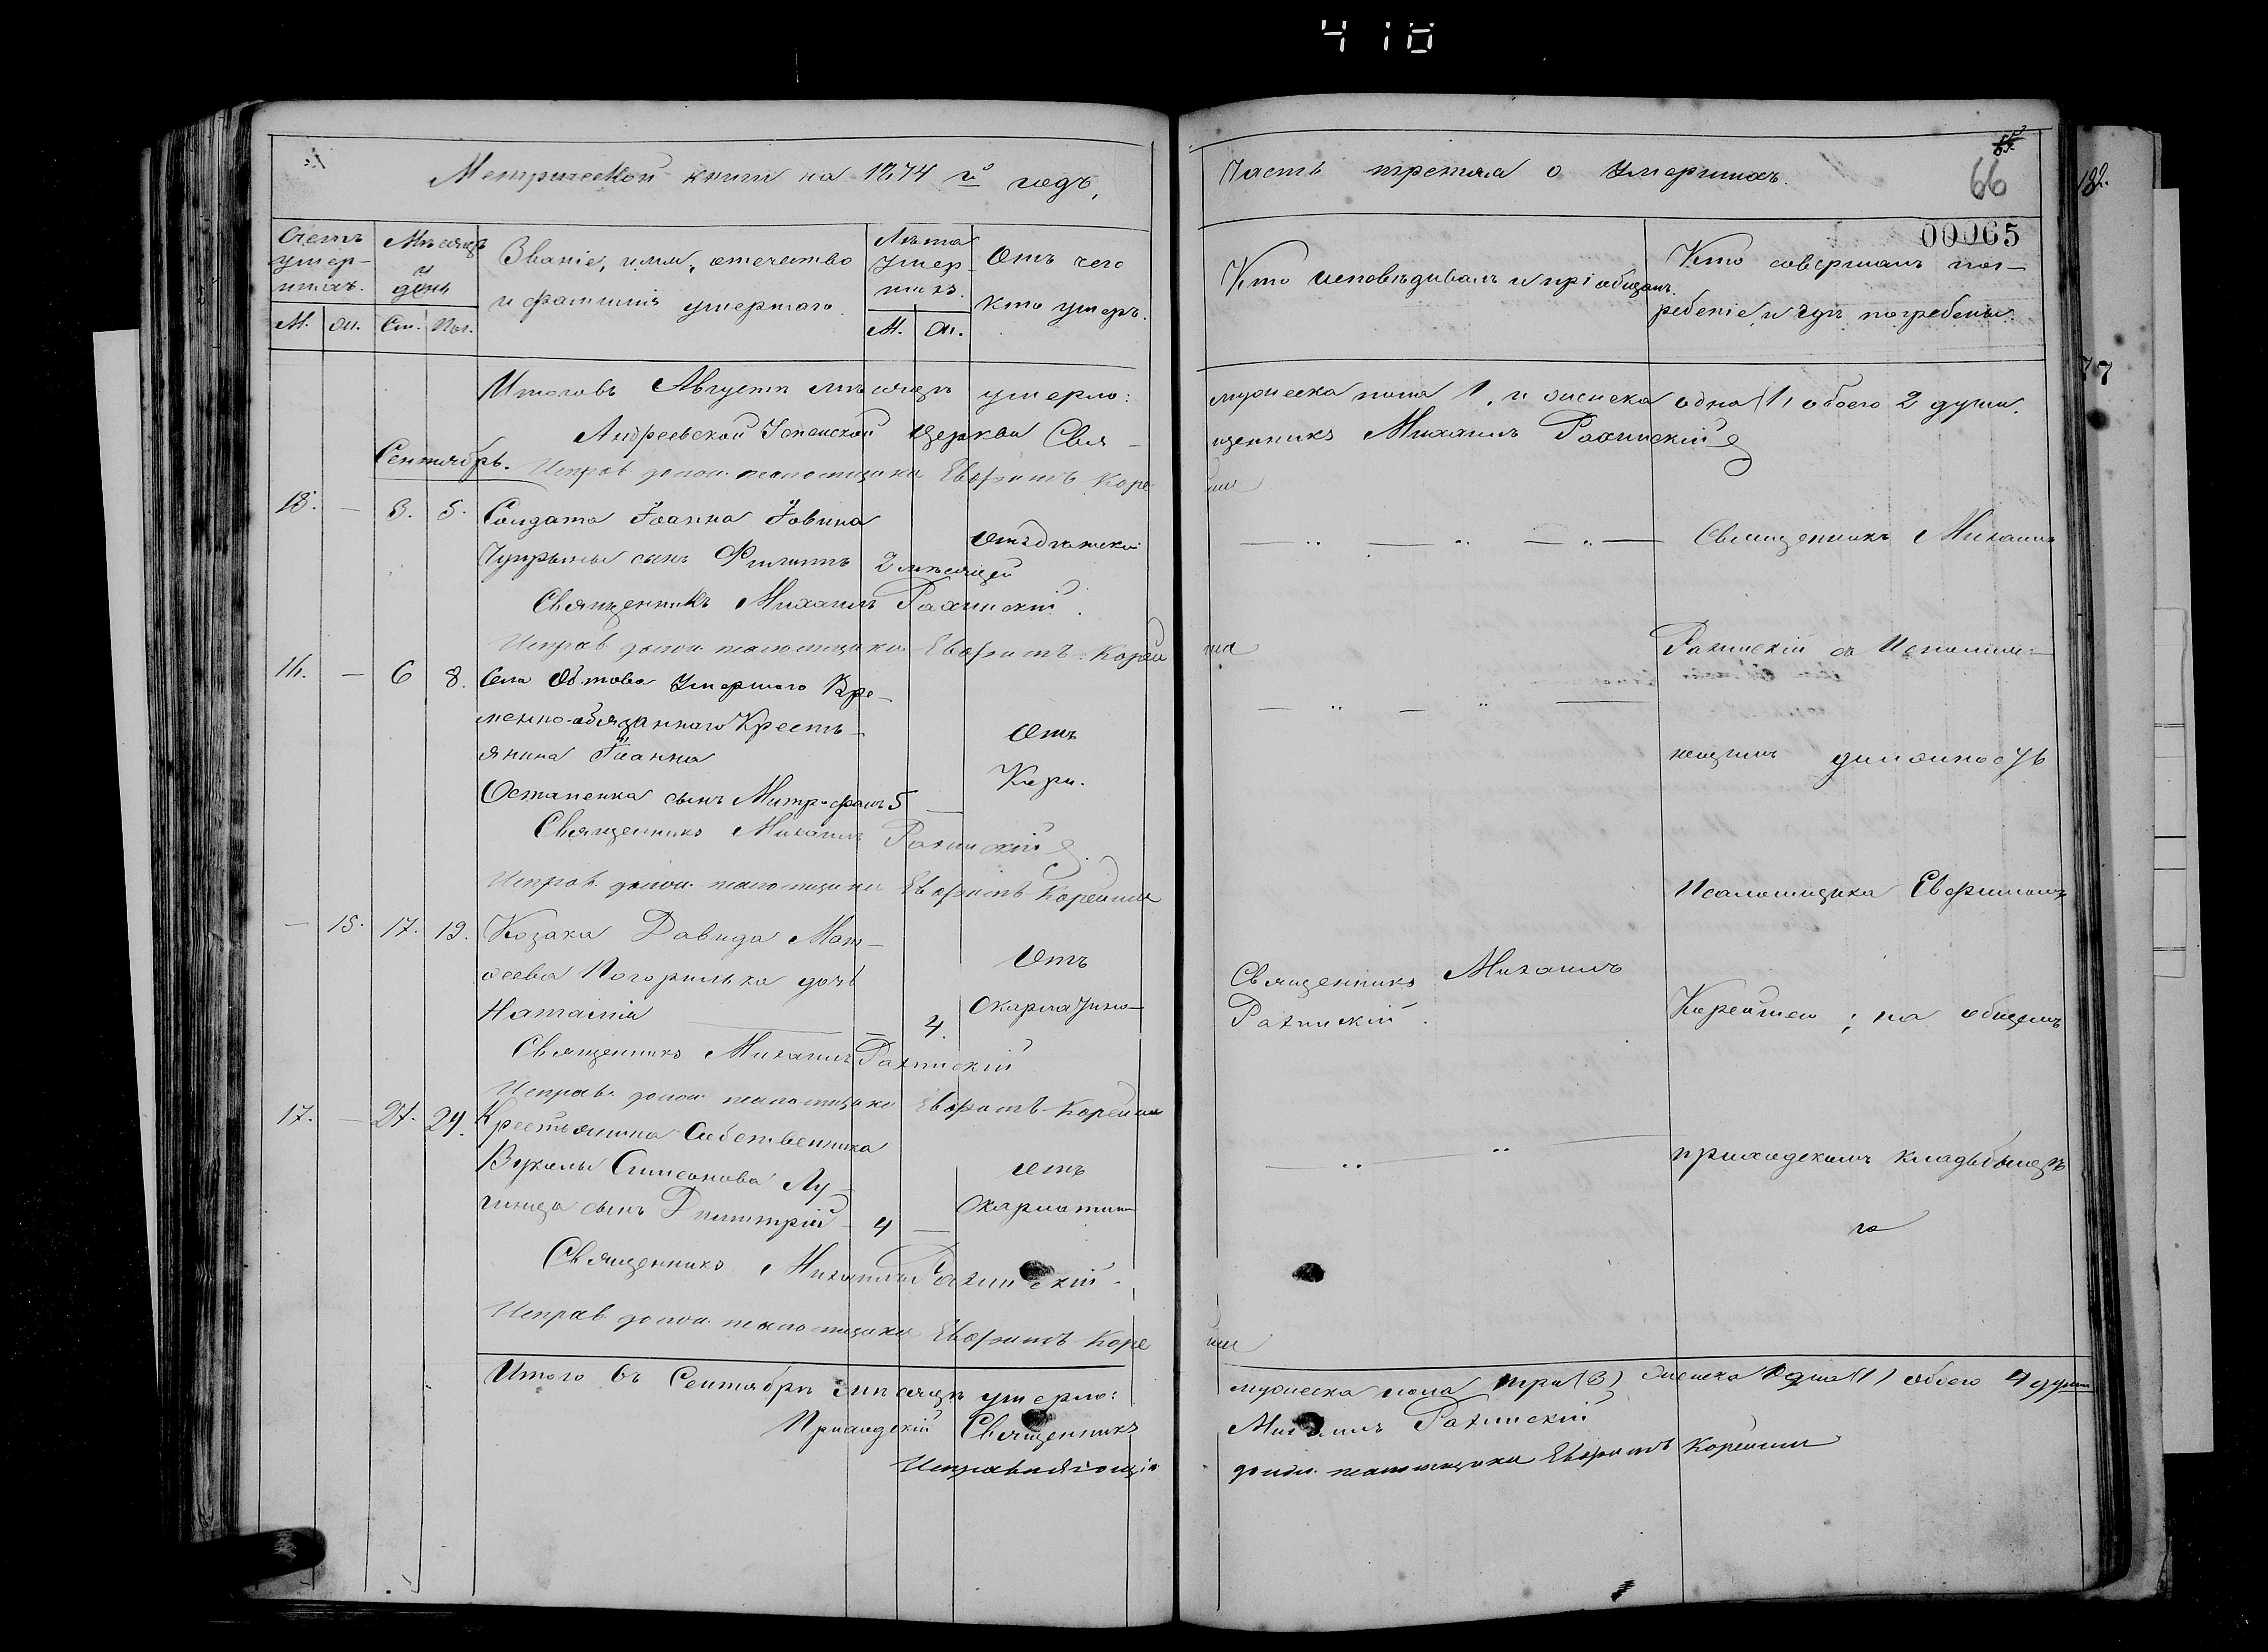 410
Метрической книги на 1874 й годъ,
Счетъ умер-шихъ.
М. Ж.
Мѣсяцъ и день
См. Пог.
Званіе, имя, отечество и фамилія умершаго.
Лѣта умер-шихъ.
М. Ж.
Отъ чего кто умеръ.
Итого въ Августѣ мѣсяцѣ умерло:
Андреевской Успенской Церкви Свя-
Сентябрь. Исправ. должн. псаломщика Евфимъ Коре
18. — 3. 5. Солдата Іоанна Іовина
Чупрыны сынъ Филиппъ 2 мѣсяцей
Священникъ Михаилъ Рахинскій.
Исправ. должн. псаломщика Евфимъ Корей
16. — 6 8. Села умершаго Вре-
менно-обязаннаго Кресть-
янина Іоанна
Остапенка сынъ Митрофанъ 5 —
Отъ
Кори.
Священникъ Михаилъ Рахинскій
Исправ. должн. псаломщика Евфимъ Корейша
— 15. 17. 19. Козака Давида Мат-
ѳеева Погорилька дочь
Наталія — 4.
Отъ
Скарлатины
Священникъ Михаилъ Рахинскій
Исправ. должн. псаломщика Евфимъ Корейша
17. — 27. 29. Крестьянина Собственника
Вукулы Симеонова Лу-
сынъ Димитрій 4 —
отъ
Скарлатины
Священникъ Михаилъ Рахинскій
Исправ. должн. псаломщика Евфимъ Коре
Итого въ Сентябрѣ мѣсяцѣ умерло:
Приходскій Священникъ
Исправляющій
Часть третяя о умершихъ.
66
00065
Кто исповѣдивалъ и пріобщалъ.
Кто совершалъ пог-
ребеніе и гдѣ погребены.
мужеска пола 1, и женска одна (1) обоего 2 души.
щенникъ Михаилъ Рахинскій
ша
Священникъ Михаилъ
ша
Рахинскій съ Исполня-
ющимъ должность
Псаломщика Евфимомъ
Священникъ Михаилъ
Рахинскій.
Корейшею; на общемъ
приходскомъ кладбищѣ
ша
мужеска пола три (3) женска одна (1) обоего 4 души
Михаилъ Рахинскій
должн. псаломщика Евфимъ Корейша